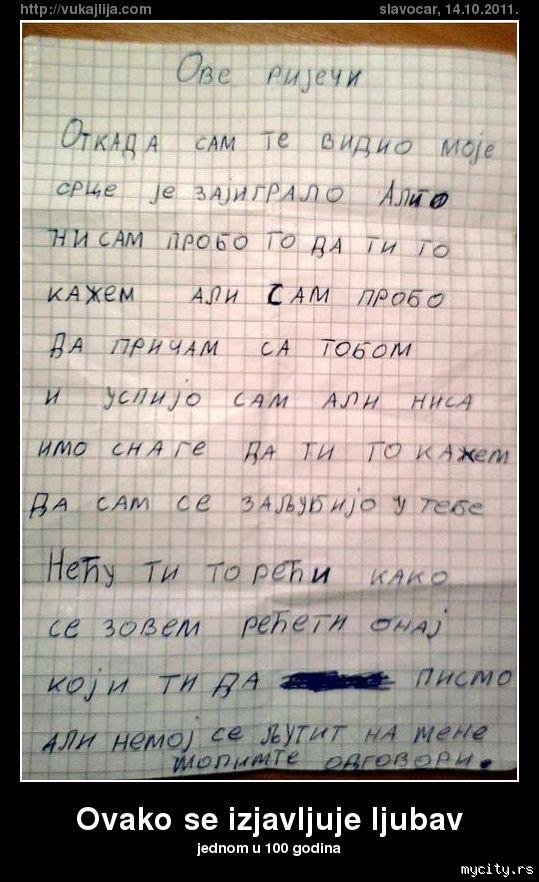 http://vukajlija.com slavocar, 14.10.2011.
Ове ријечи
Откада сам те видио моје
срце је зајиграло Али
нисам пробо то да ти то
кажем али сам пробо
да причам са тобом
и успијо сам али ниса
имо снаге да ти то кажем
да сам се заљубијо у тебе
Нећу ти то рећи како
се зовем рећети онај
који ти да писмо
али немој се љутит на мене
молимте одговори.
Ovako se izjavljuje ljubav
jednom u 100 godina
mycity.rs